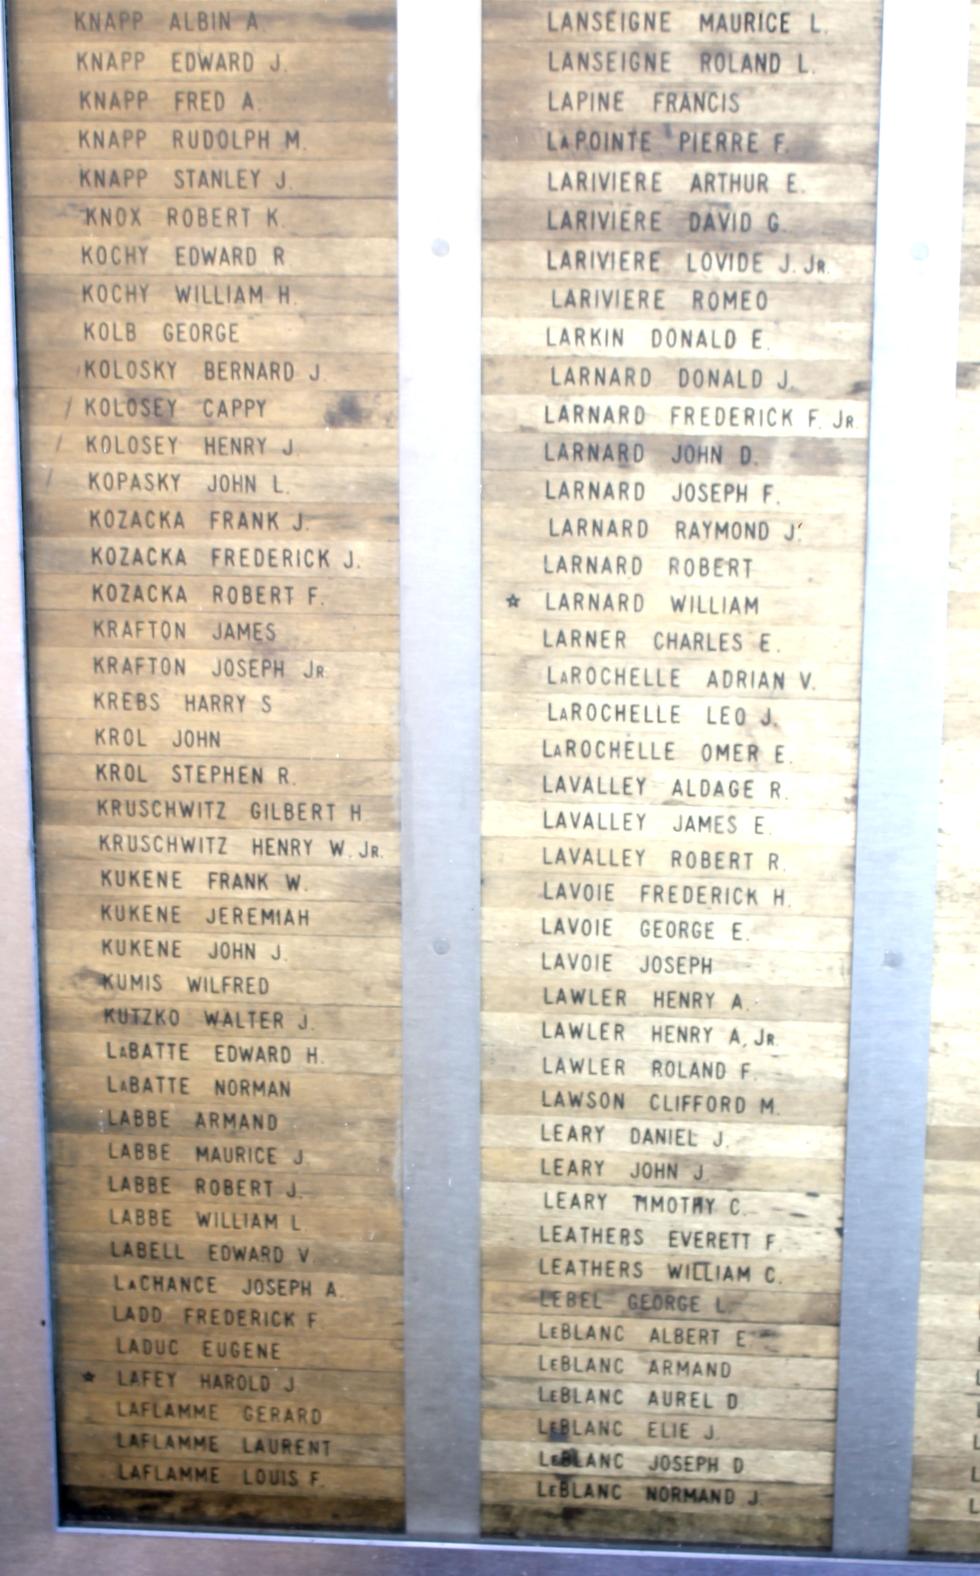 KNAPP ALBIN A
KNAPP EDWARD J.
KNAPP FRED A.
KNAPP RUDOLPH M.
KNAPP STANLEY J.
KNOX ROBERT K.
KOCHY EDWARD R
KOCHY WILLIAM H.
KOLB GEORGE
KOLOSKY BERNARD J.
KOLOSEY CAPPY
KOLOSEY HENRY J.
KOPASKY JOHN L.
KOZACKA FRANK J.
KOZACKA FREDERICK J.
KOZACKA ROBERT F.
KRAFTON JAMES
KRAFTON JOSEPH JR
KREBS HARRY S
KROL JOHN
KROL STEPHEN R.
KRUSCHWITZ GILBERT H
KRUSCHWITZ HENRY W. JR.
KUKENE FRANK W.
KUKENE JEREMIAH
KUKENE JOHN J.
KUMIS WILFRED
KUTZKO WALTER J.
LABATTE EDWARD H.
LABATTE NORMAN
LABBE ARMAND
LABBE MAURICE J.
LABBE ROBERT J.
LABBE WILLIAM L
LABELL EDWARD V.
LACHANCE JOSEPH A.
LADD FREDERICK F.
LADUC EUGENE
★ LAFEY HAROLD J
LAFLAMME GERARD
LAFLAMME LAURENT
LAFLAMME LOUIS F.
LANSEIGNE MAURICE L.
LANSEIGNE ROLAND L.
LAPINE FRANCIS
LAPOINTE PIERRE F.
LARIVIERE ARTHUR E.
LARIVIERE DAVID G.
LARIVIERE LOVIDE J. JR.
LARIVIERE ROMEO
LARKIN DONALD E.
LARNARD DONALD J.
LARNARD FREDERICK F. JR.
LARNARD JOHN D.
LARNARD JOSEPH F.
LARNARD RAYMOND J.
LARNARD ROBERT
★ LARNARD WILLIAM
LARNER CHARLES E.
LAROCHELLE ADRIAN V.
LAROCHELLE LEO J.
LAROCHELLE OMER E.
LAVALLEY ALDAGE R.
LAVALLEY JAMES E.
LAVALLEY ROBERT R.
LAVOIE FREDERICK H.
LAVOIE GEORGE E.
LAVOIE JOSEPH
LAWLER HENRY A.
LAWLER HENRY A, JR.
LAWLER ROLAND F.
LAWSON CLIFFORD M.
LEARY DANIEL J.
LEARY JOHN J
LEARY TIMOTHY C.
LEATHERS EVERETT F.
LEATHERS WILLIAM C.
LEBEL GEORGE L.
LEBLANC ALBERT E
LEBLANC ARMAND
LEBLANC AUREL D
LEBLANC ELIE J.
LEBLANC JOSEPH D
LEBLANC NORMAND J